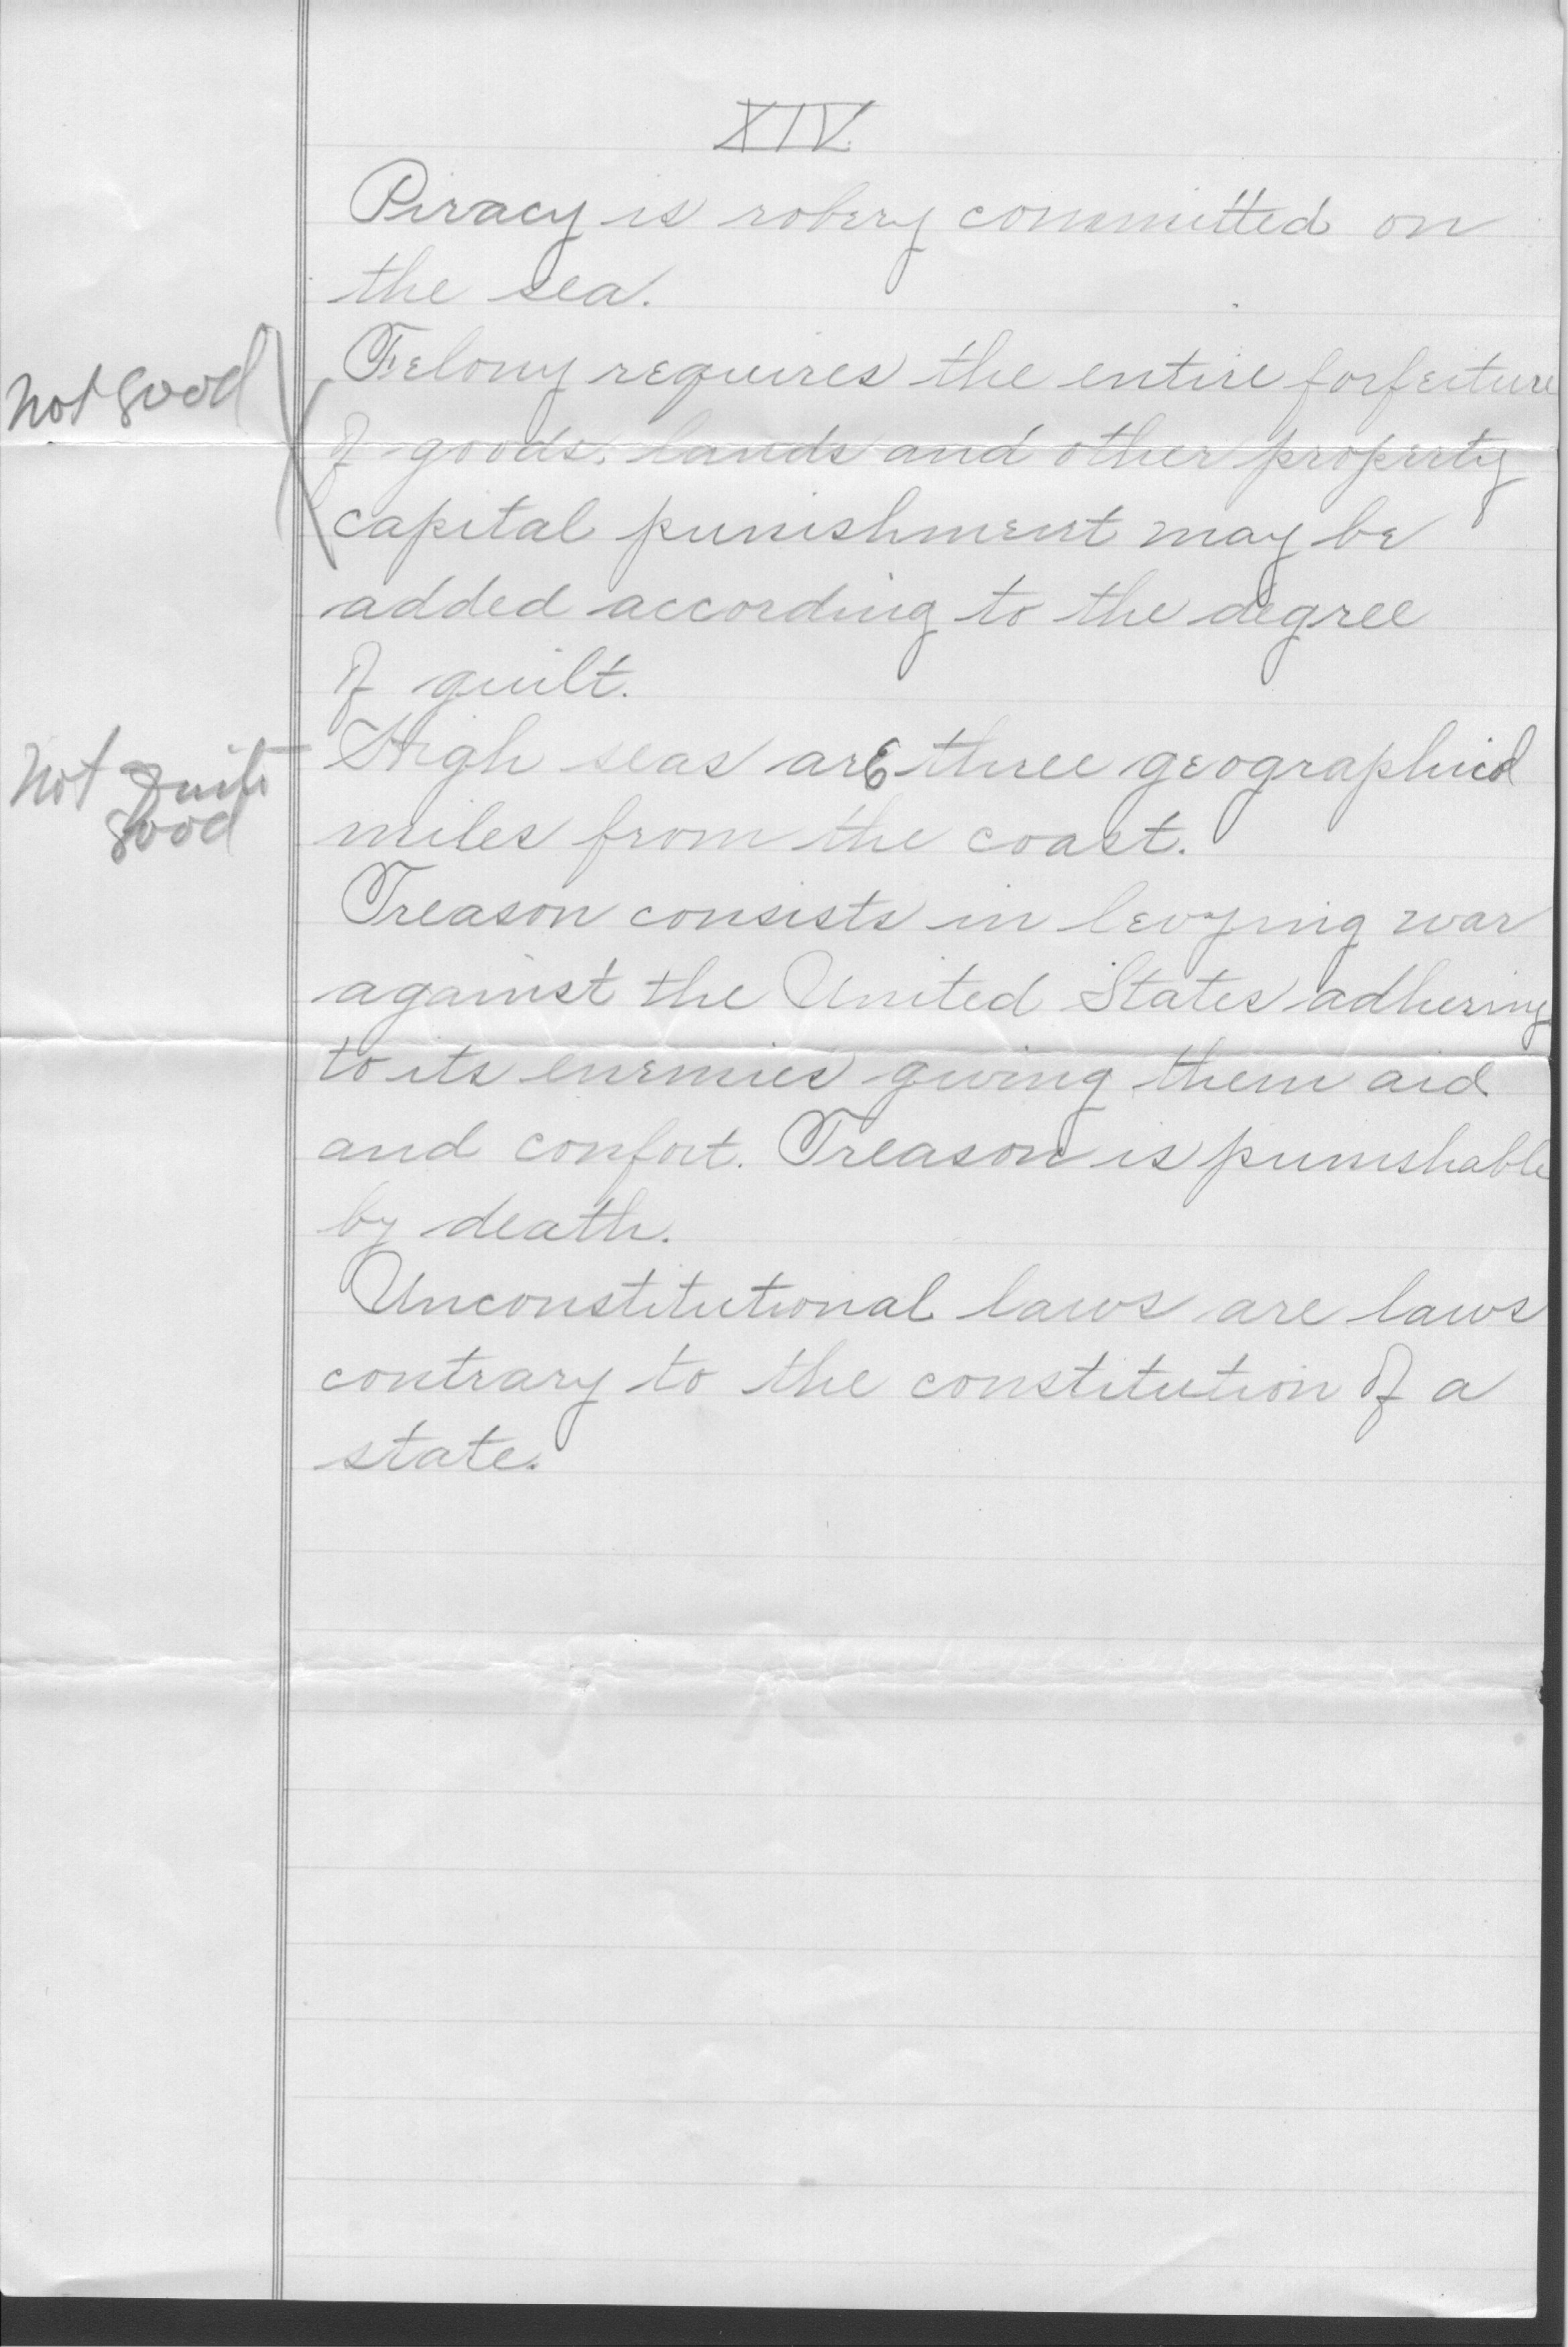 XIV.
Piracy is robery committed on
the sea.
Not good
Felony requires the entire forfeiture
of goods, lands and other property
capital punishment may be
added according to the degree
of guilt.
Not quite
good
High seas are three geographical
miles from the coast.
Treason consists in levying war
against the United States adhering
to its enemies giving them aid
and confort. Treason is punishable
by death.
Unconstitutional laws are laws
contrary to the constitution of a
state.